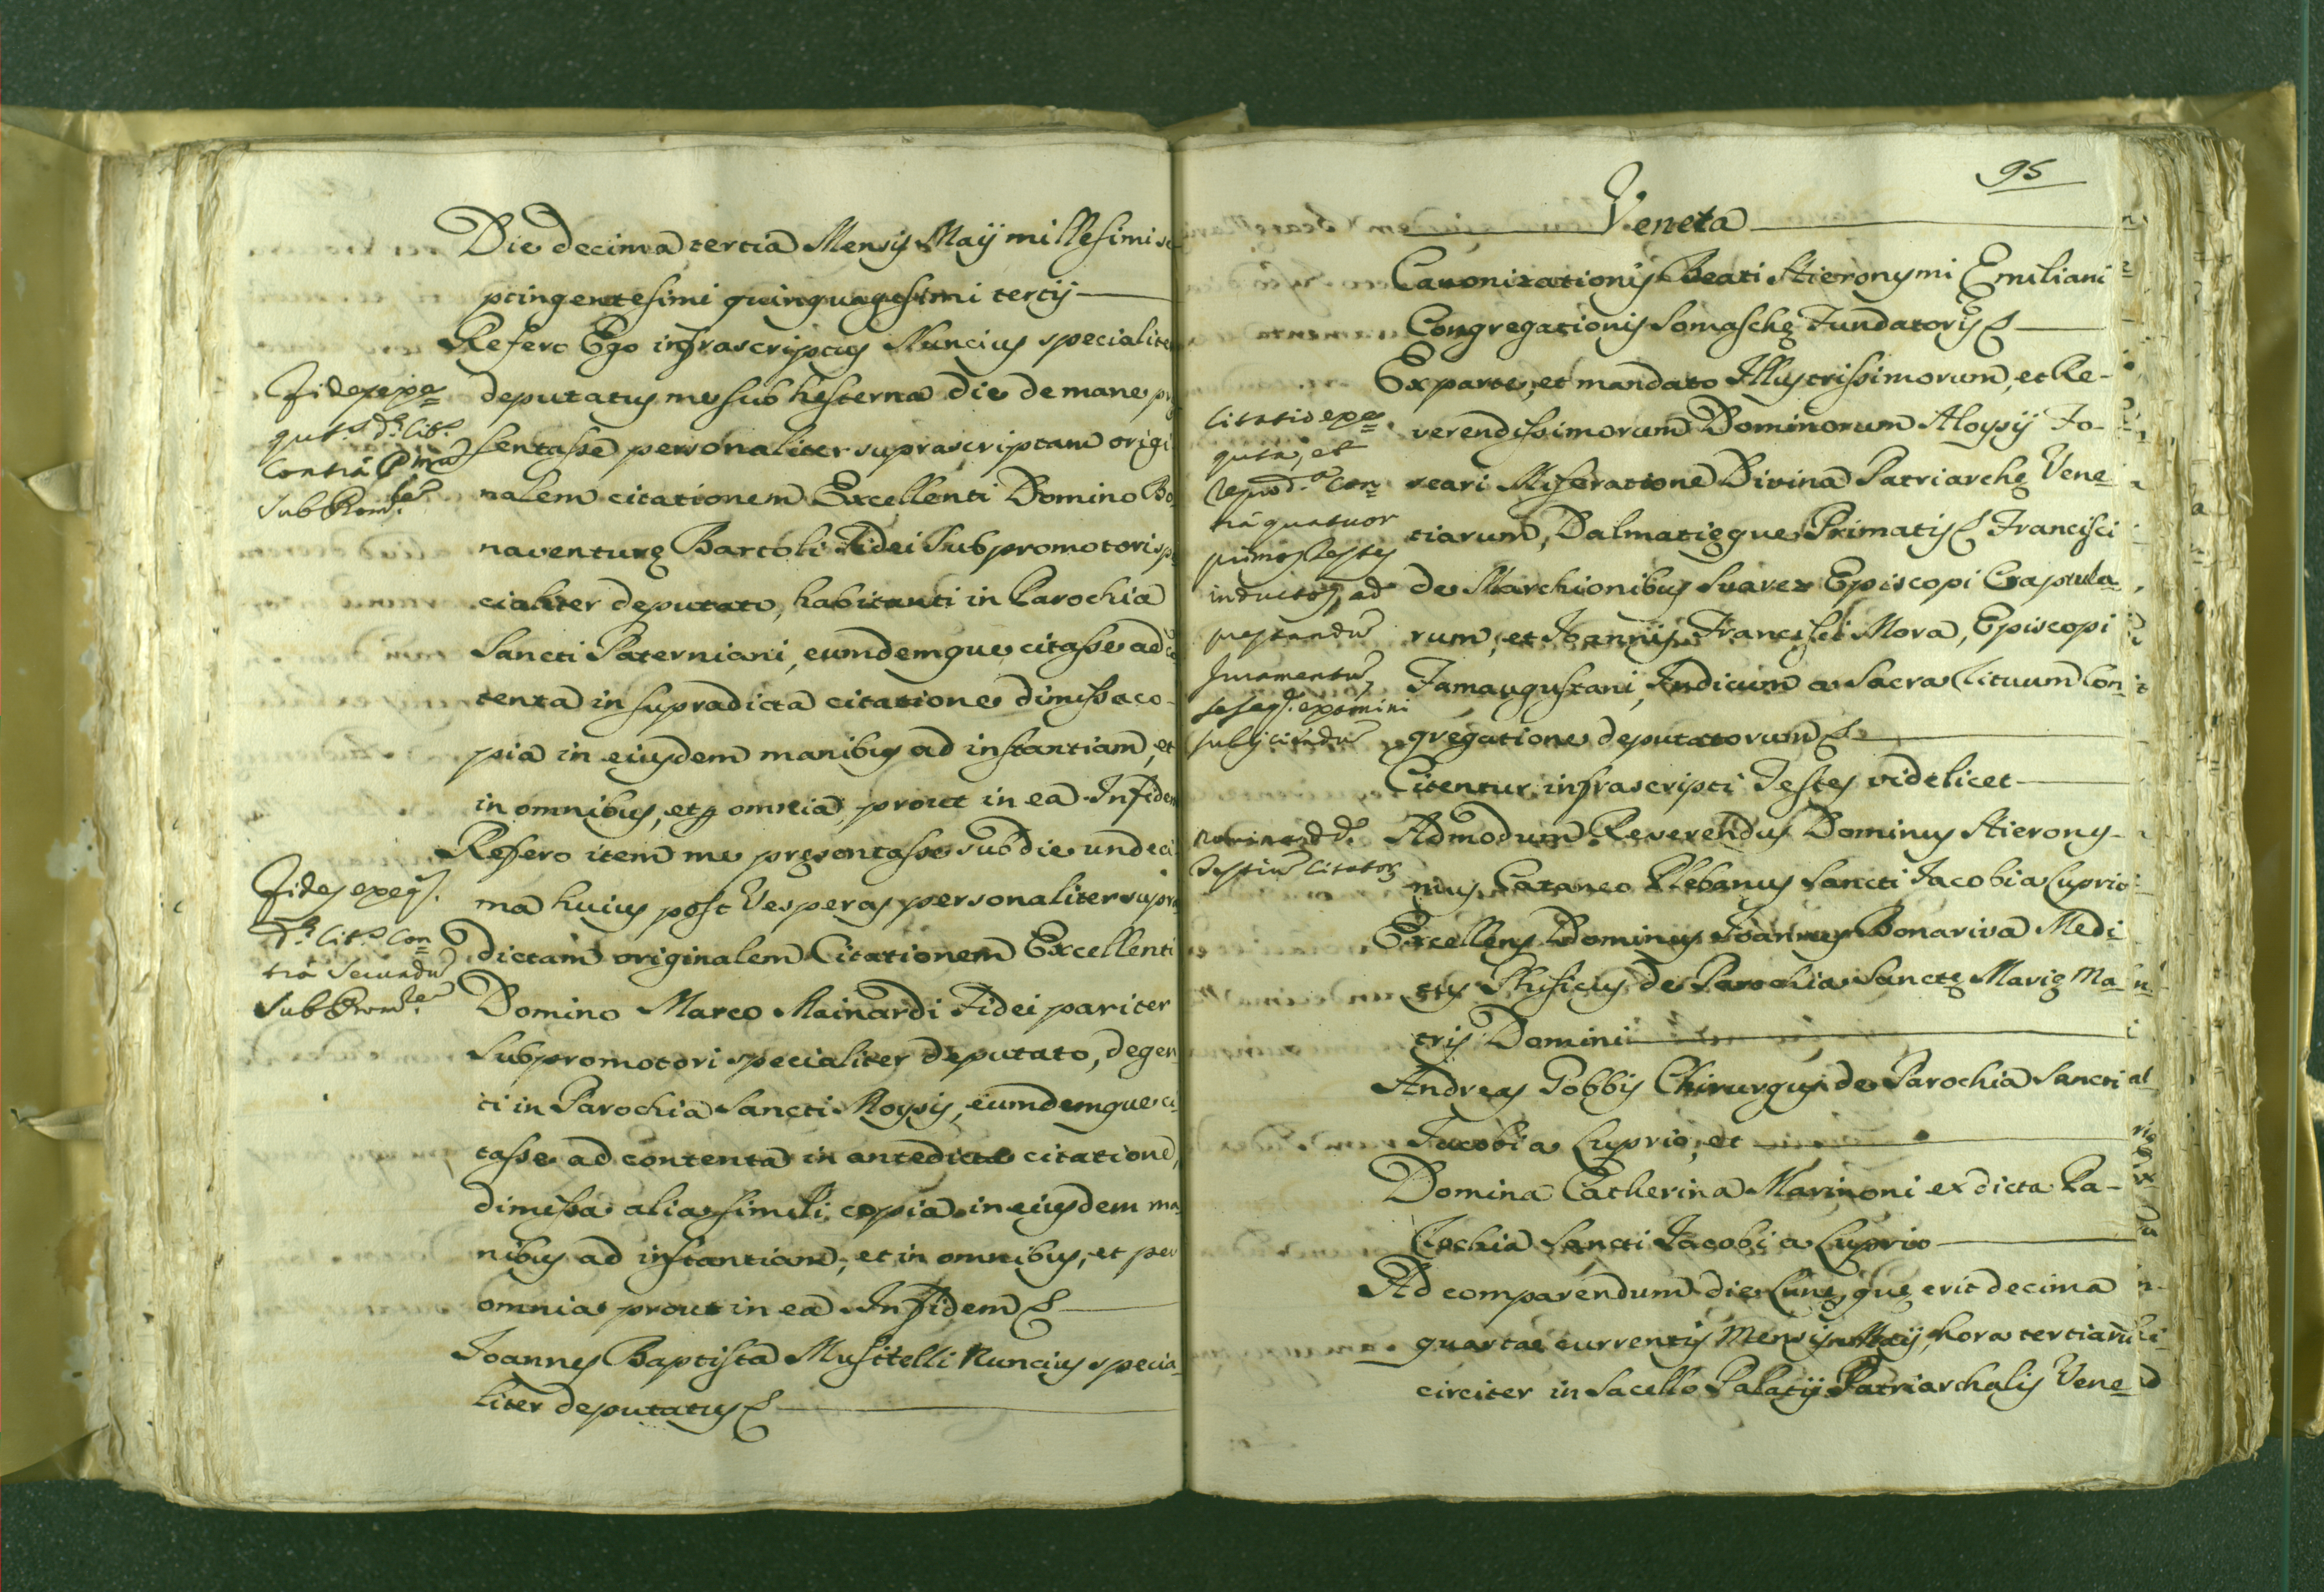 Die decima tertia Mensis Maij millesimi se
ptingentesimi quinquagesimi tertij
Refero Ego infrascriptus Nuncius specialiter
deputatus me sub hesterna die de mane præ
sentasse personaliter suprascriptam origi
nalem citationem Excellenti Domino Bo
naventuræ Bartoli Fidei Subpromotori spe
cialiter deputato, habitanti in Parochia
Sancti Paterniani, eumdemque citasse ad con
tenta in supradicta citatione dimissa co-
pia in eiusdem manibus ad instantiam, et
in omnibus, et per omnia, prout in ea. In fidem
Refero item me præsentasse sub die undeci
ma huius post Vesperas personaliter supra
dictam originalem Citationem Excellenti
Domino Marco Mainardi Fidei pariter
Subpromotori specialiter deputato, degen
ti in Parochia Sancti Moysis, eumdemque ci
tasse ad contenta in antedicta citatione,
dimissa alia simili copia in eiusdem ma
nibus ad instantiam, et in omnibus, et per
omnia prout in ea. In Fidem
Joannes Baptista Musitelli Nuncius specia
liter deputatus
Contra
Fides
Contra Secundu
95
Veneta
Canonizationis Beati Hieronymi Emiliani
Congregationis Somaschę Fundatoris
Ex parte, et mandato Illustrissimorum, et Re-
verendissimorum Dominorum Aloysij Fo-
scari Miseratione Divina Patriarchę Vene
tiarum, Dalmatięque Primatis Francisci
de Marchionibus Suarez Episcopi Craptula
rum, et Joannis Francisci Mora, Episcopi
Famaugustani, Judicum a Sacra Rituum Con
gregatione deputatorum
Citentur infrascripti Testes videlicet
Admodum Reverendus Dominus Hierony-
mus Cataneo Plebanus Sancti Jacobi a Luprio
Excellens Dominus Joannes Bonariva Medi
cus Phisicus de Parochia Sanctę Marię Ma
tris Domini
Andreas Gobbis Chirurgus de Parochia Sancti
Jacobi a Luprio, et
Domina Catherina Marinoni ex dicta Pa-
rochia Sancti Jacobi a Luprio
Ad comparendum die Lunę, quę erit decima
quarta currentis Mensis Maij, hora tertiarum
circiter in Sacello Palatij Patriarchalis Vene
quatuor
primos Testes
inductos, ad
præstandu
Juramentu,
examini
subijciendu